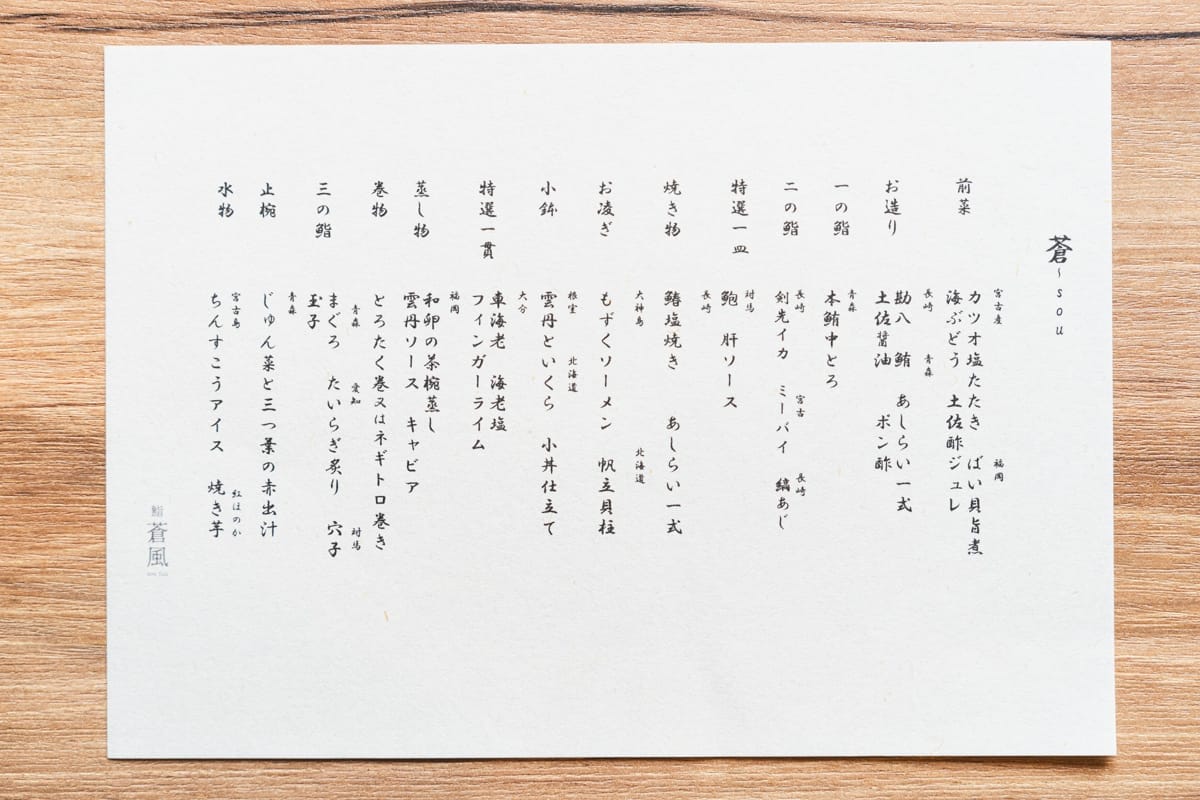 蒼～sou
前菜
宮古産 福岡
カツオ塩たたき ばい貝旨煮
海ぶどう 土佐酢ジュレ
お造り
長崎 青森
勘八 鮪 あしらい一式
土佐醤油 ポン酢
一の鮨
青森
本鮪中とろ
二の鮨
長崎 宮古 長崎
剣先イカ ミーバイ 縞あじ
特選一皿
対馬
鮑 肝ソース
焼き物
長崎
鰆塩焼き あしらい一式
お凌ぎ
大神島 北海道
もずくソーメン 帆立貝柱
小鉢
根室 北海道
雲丹といくら 小丼仕立て
特選一貫
大分
車海老 海老塩
フィンガーライム
蒸し物
福岡
和卵の茶椀蒸し
雲丹ソース キャビア
巻物
とろたく巻又はネギトロ巻き
三の鮨
青森 愛知 対馬
まぐろ たいらぎ炙り 穴子
玉子
止椀
青森
じゅん菜と三つ葉の赤出汁
水物
宮古島 紅ほのか
ちんすこうアイス 焼き芋
鮨 蒼風